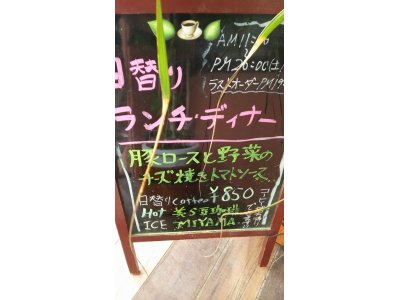 AM11:
PM20:00(土
ラストオーダーPM19
日替り
ランチ・ディナー
豚ロースと野菜の
チーズ焼きトマトソース
日替りCoffee ¥850
Hot 美S豆珈琲
ICE MIYAMA